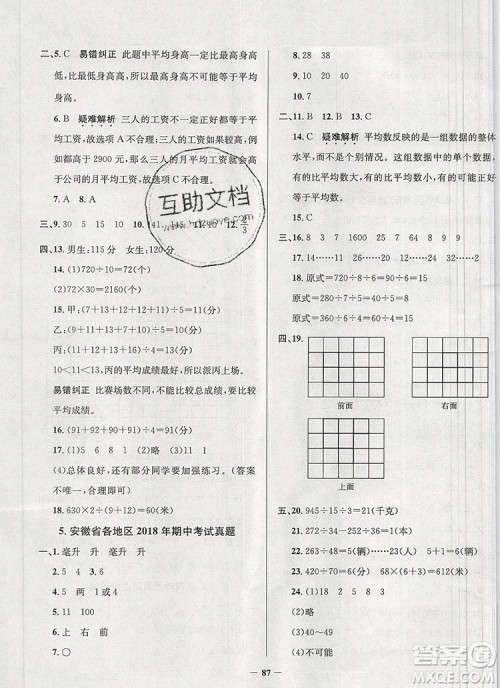 二、5. C 易错纠正 此题中平均身高一定比最高身高
低，比最低身高高，最高身高不可能等于平均
身高。
6. B 疑难解析 三人的工资不一定都等于平均
工资，故选项A不合理；三人的工资如果都
高于2900元，那么三人的月平均工资就会
高于公司的月平均工资，故选项C不合理。
7. A 8. A
三、9. 30 15 15 10. 141
四、13. 男生：115分 女生：120分
14. (1)720÷10=72(个)
(2)72×30=2160(个)
15. 甲：(7+13+12+11+12)÷5=11(分)
乙：(13+13+13+13)÷4=13(分)
丙：(9+11+10)÷3=10(分)
10<11<13 所以应派丙上场。
易错纠正 比赛场数不同，不能比较总成绩，要比较
平均成绩。
16. (91+92+90+91)÷4=91(分)
17. (1)55 5 (2)略 (3)9 1
(4)总体良好，还有部分同学要加强练习。(答案
不唯一，正确即可)
18. 630÷(2+1)÷2=105(千米)
5. 安徽省各地区2018年期中考试真题
一、1. 毫升 升 毫升 升
2. 5 4 3. 6
4. 5 两 1或4
5. 11 100
6. 上 右 前
7. ○
8. 28 38
9. 15 35
10. 7
二、11. B 12. B 13. C
14. C 疑难解析 平均数反映的是一组数据的整体
水平，而不是个别情况。这组数据中的单个数据，
有的比平均数大，有的比平均数小，有的可能等于
平均数。
15. C
三、16. 6 8 5 90
17. 15 22……6 11……4
18. 原式=360÷20=18
原式=600÷100=6
原式=240÷16=15
四、19.
前面
右面
上面
五、20. 945÷15÷21=3(千克)
21. 272÷34=8(米)
22. 290÷58=5(辆) 336÷56=6(辆)
23. 420÷70=6(分) 68×(3+6)=612(米)
24. (1)8 2 9 5 24
(2)略
(3)40～49
(4)不可能
互助文档
87